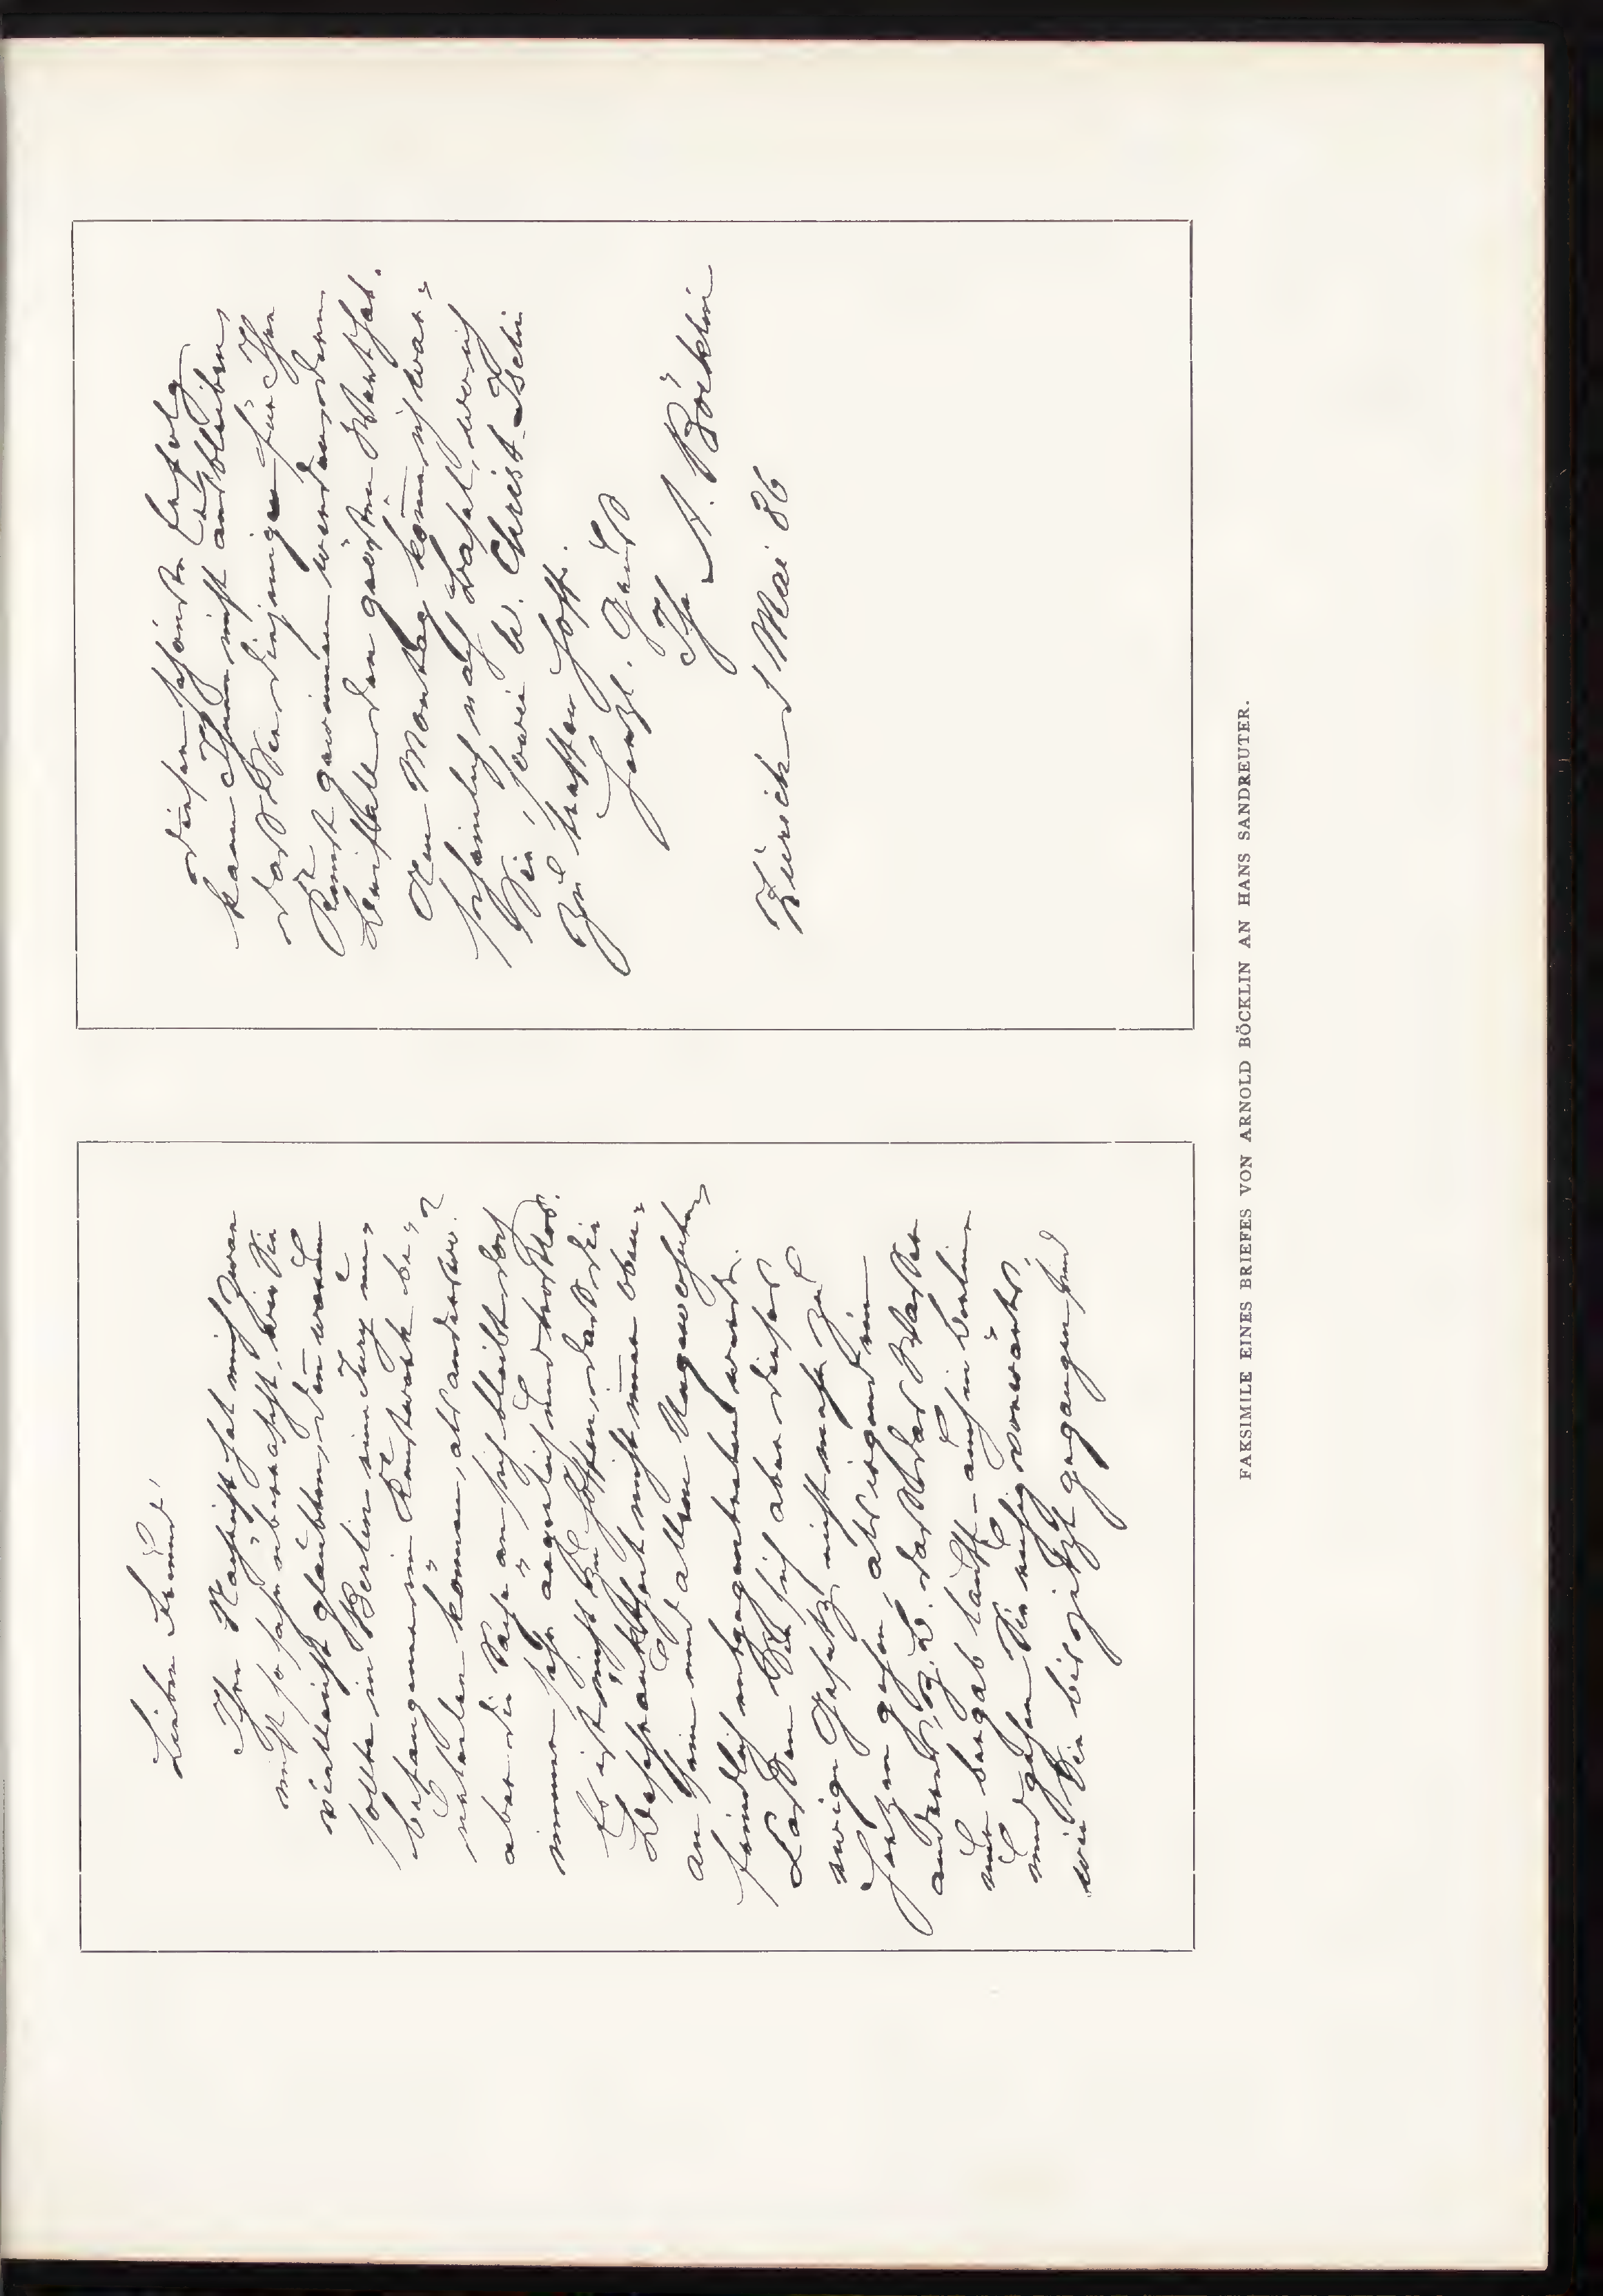 Lieber Freund!
Ihre Nachricht hat mich zwar
nicht so sehr überrascht, wie Sie
vielleicht glaubten, denn warum
sollte in Berlin eine Jury un=
befangener ein Kunstwerk be=
urteilen können, als anderswo?
aber die Sache an sich bleibt doch
immer sehr ärgerlich und trostlos.
Es ist nicht zu hoffen, dass die
Beschränktheit nicht immer oben=
an sein und allem Ungewohnten
feindlich entgegentreten werde.
Lassen Sie sich aber dieses
ewige Gesetz nicht mehr zu
Herzen gehen, als irgend ein
anderes, z. B. dass das Wasser
nur bergab läuft – auch in Berlin
und gehen Sie ruhig vorwärts
wie Sie bis jetzt gegangen sind
dieser schönste Erfolg
kann Ihnen nicht ausbleiben,
dass Sie diejenigen für Ihre
Kunst gewinnen werden, deren
Beifall den grössten Wert hat.
Am Montag komme ich war=
scheinlich nach Basel, wo ich
Sie, sowie H. Christ-Iselin
zu treffen hoffe.
Herzl. Gruss
Ihr A. Böcklin
Zürich Mai 86
FAKSIMILE EINES BRIEFES VON ARNOLD BÖCKLIN AN HANS SANDREUTER.